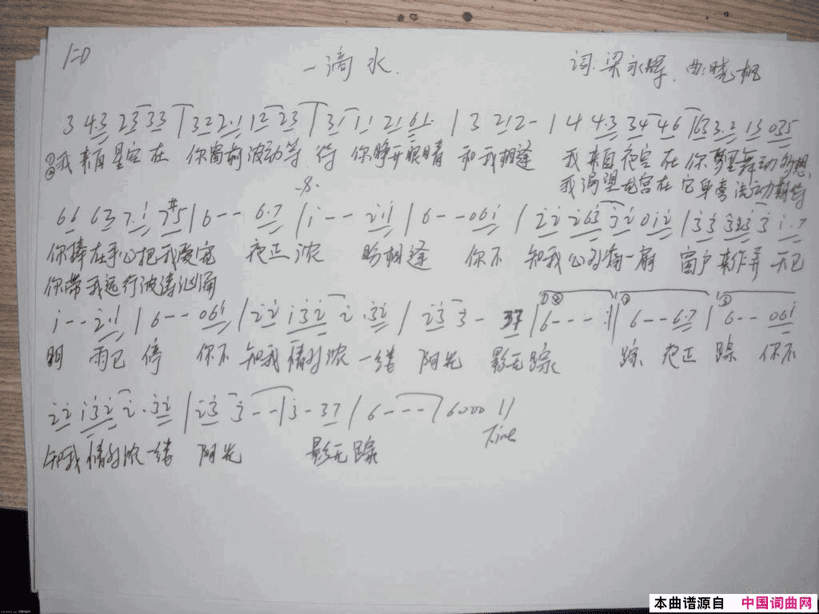 1=D
一滴水. 词:梁永辉. 曲:晓枫
3 43 23 33 | 32 2·1 12 23 | 31 1· 21 61 | 3 212 - | 4 4 43 34 46 | 63 3·2 13 035
①我来自星空在 你窗前波动等待 你睁开眼睛 和我相逢 我来自夜空在你梦里舞动
我渴望龙宫在它身旁
·S·
66 63 7·i 7#5 | 6 - - 6·7 | i - - 2·i | 6 - - 06i | 22 263 32 0i2 | 33 323 3 i·7
你捧在手心把我爱宠 夜正浓 盼相逢 你不 知我心为有一扇 窗户来作弄 天已
你带我远行波涛汹涌
i - - 2·i | 6 - - 06i | 22 i32 2·32 | 23 3 - 37 | 6 - - - :| 6 - - 6·7 | 6 - - 06i
明 雨已停 你不 知我情为浓 一缕 阳光 影无踪 踪 夜正 踪 你不
22 i32 2·32 | 23 3 - - | 3 - 37 | 6 - - - | 6000 ||
知我情为浓 一缕 阳光 影无踪
Fine
本曲谱源自 中国词曲网